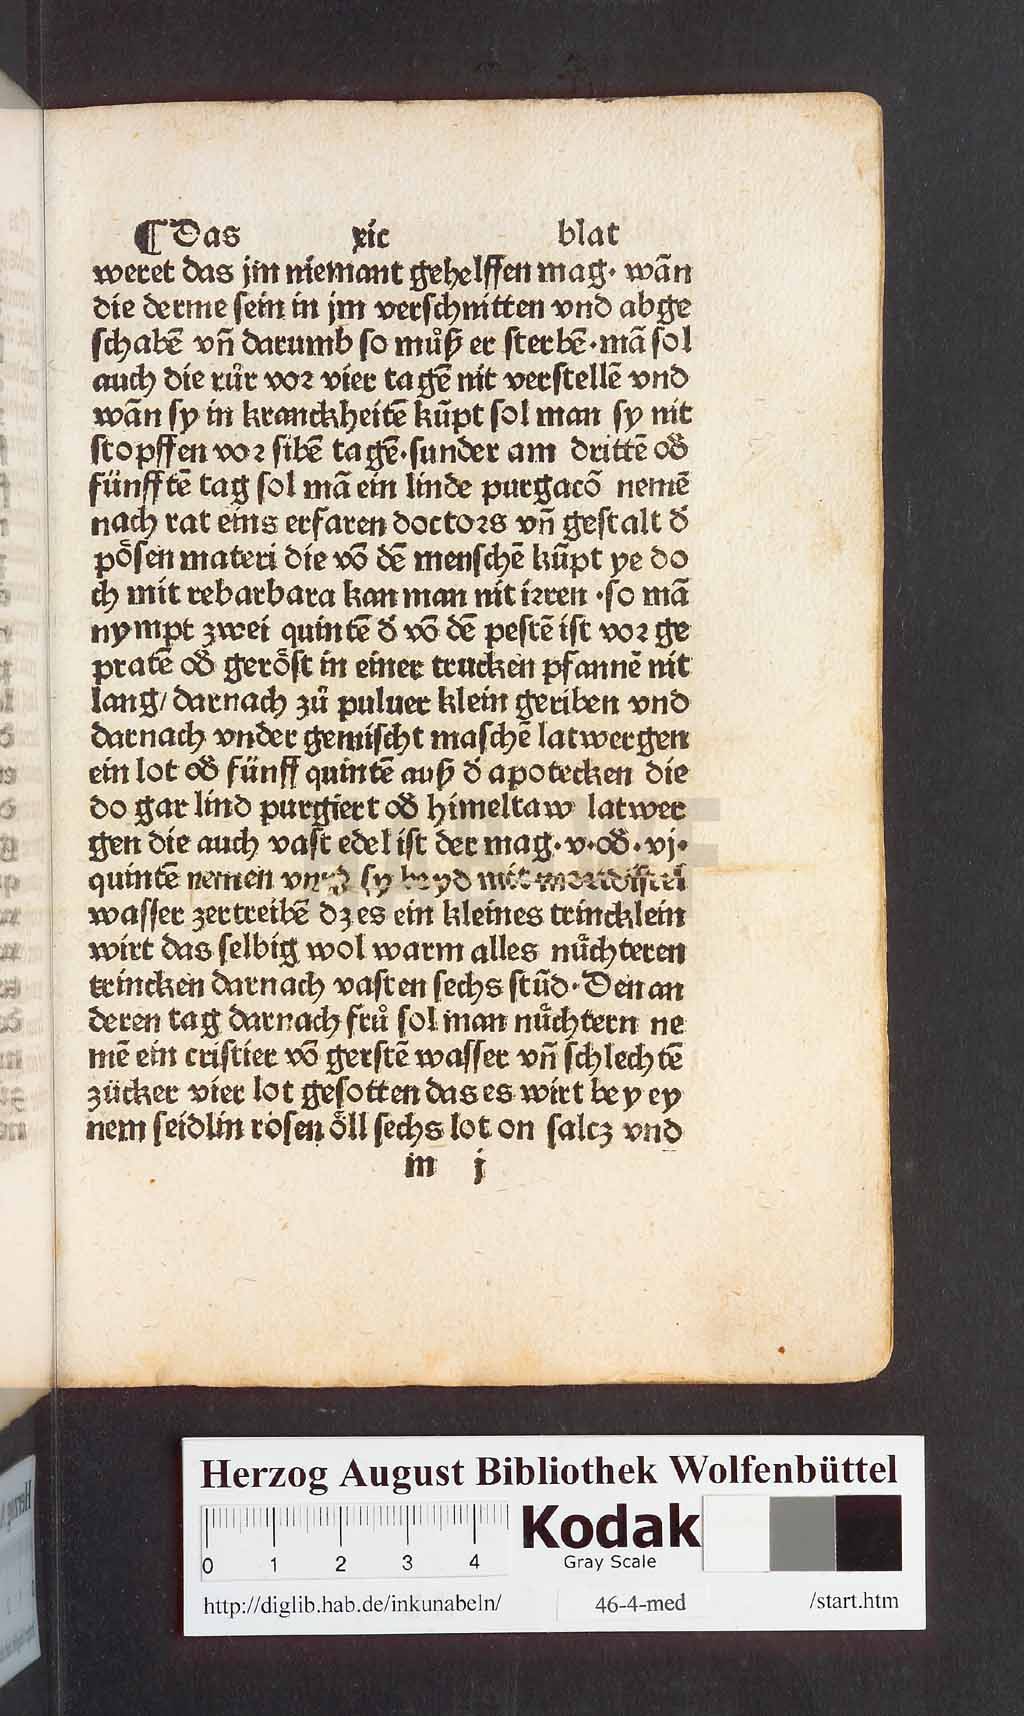 ¶ Das xic blat
weret das jm niemant gehelffen mag· wañ
die derme sein in jm verschnitten vnd abge
schabẽ vñ darumb so můß er sterbẽ·mã sol
auch die růr vor vier tagẽ nit verstellẽ vnd
wãn sy in kranckheitẽ kũpt sol man sy nit
stopffen vor sibẽ tagẽ·sunder am drittẽ oð
fünfftẽ tag sol mã ein linde purgacõ nemẽ
nach rat eins erfaren doctors vñ gestalt ð
pôsen materi die võ dẽ menschẽ kũpt ye do
ch mit rebarbara kan man nit irren ·so mã
nympt zwei quintẽ ð võ dẽ pestẽ ist vor ge
pratẽ oð gerôst in einer trucken pfannẽ nit
lang/ darnach zů puluer klein geriben vnd
darnach vnder gemischt maschẽ latwergen
ein lot oð fünff quintẽ auß ð apotecken die
do gar lind purgiert oð himeltaw latwer
gen die auch vast edel ist der mag·v·oð·vj·
quintẽ nemen vnd sy beyd mit
wasser zertreibẽ dz es ein kleines trincklein
wirt das selbig wol warm alles nůchteren
trincken darnach vasten sechs stũd·Den an
deren tag darnach frů sol man nůchtern ne
mẽ ein cristier võ gerstẽ wasser vñ schlechtẽ
zücker vier lot gesotten das es wirt bey ey
nem seidlin rosen ôll sechs lot on salcz vnd
m j
Herzog August Bibliothek Wolfenbüttel
0 1 2 3 4
Kodak
Gray Scale
http://diglib.hab.de/inkunabeln/ 46-4-med /start.htm